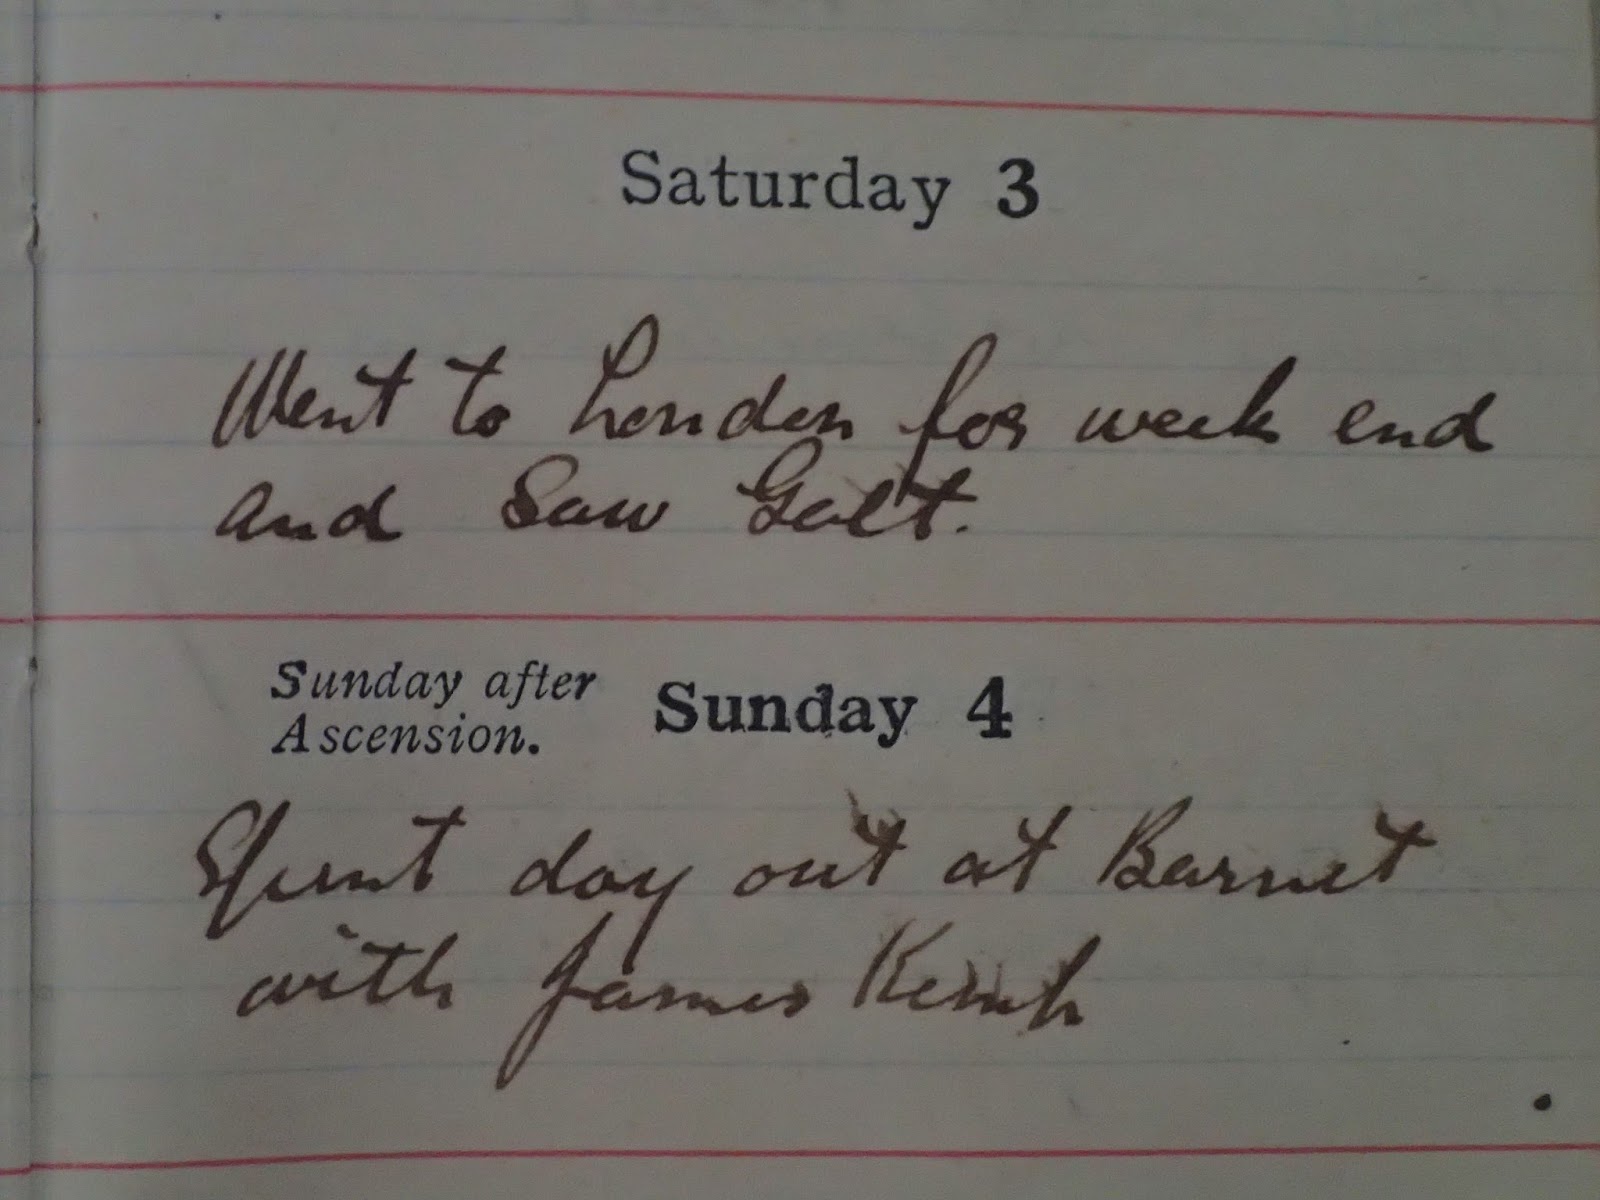 Saturday 3
Went to London for week end
and Saw Galt.
Sunday after
Ascension.
Sunday 4
Spent day out at Barnet
with James Kemp